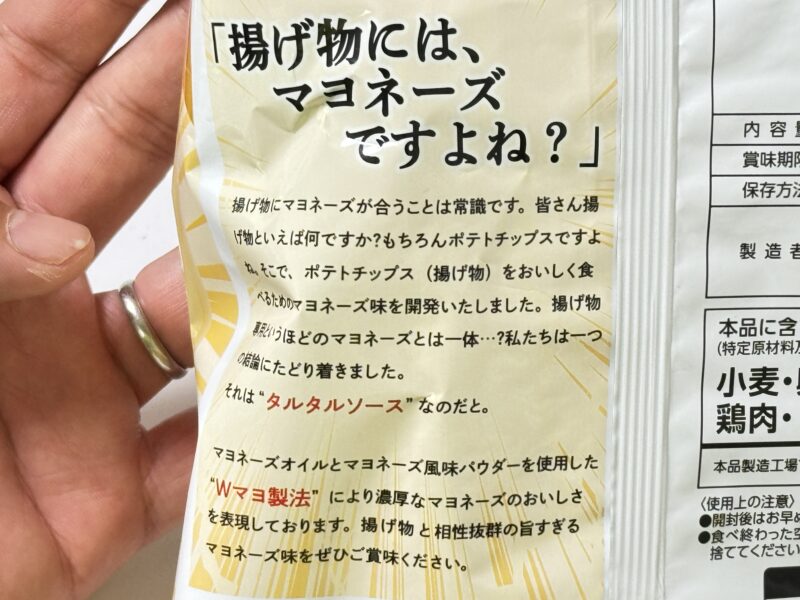 「揚げ物には、
マヨネーズ
ですよね？」
揚げ物にマヨネーズが合うことは常識です。皆さん揚
げ物といえば何ですか?もちろんポテトチップスですよ
ね。そこで、ポテトチップス（揚げ物）をおいしく食
べるためのマヨネーズ味を開発いたしました。揚げ物
専用というほどのマヨネーズとは一体…?私たちは一つ
の結論にたどり着きました。
それは“タルタルソース”なのだと。
マヨネーズオイルとマヨネーズ風味パウダーを使用した
“Wマヨ製法”により濃厚なマヨネーズのおいしさ
を表現しております。揚げ物と相性抜群の旨すぎる
マヨネーズ味をぜひご賞味ください。
内容
賞味期限
保存方法
製造者
本品に含
(特定原材料及
小麦・
鶏肉・
本品製造工場
〈使用上の注意〉
●開封後はお早め
●食べ終わった空
捨ててください